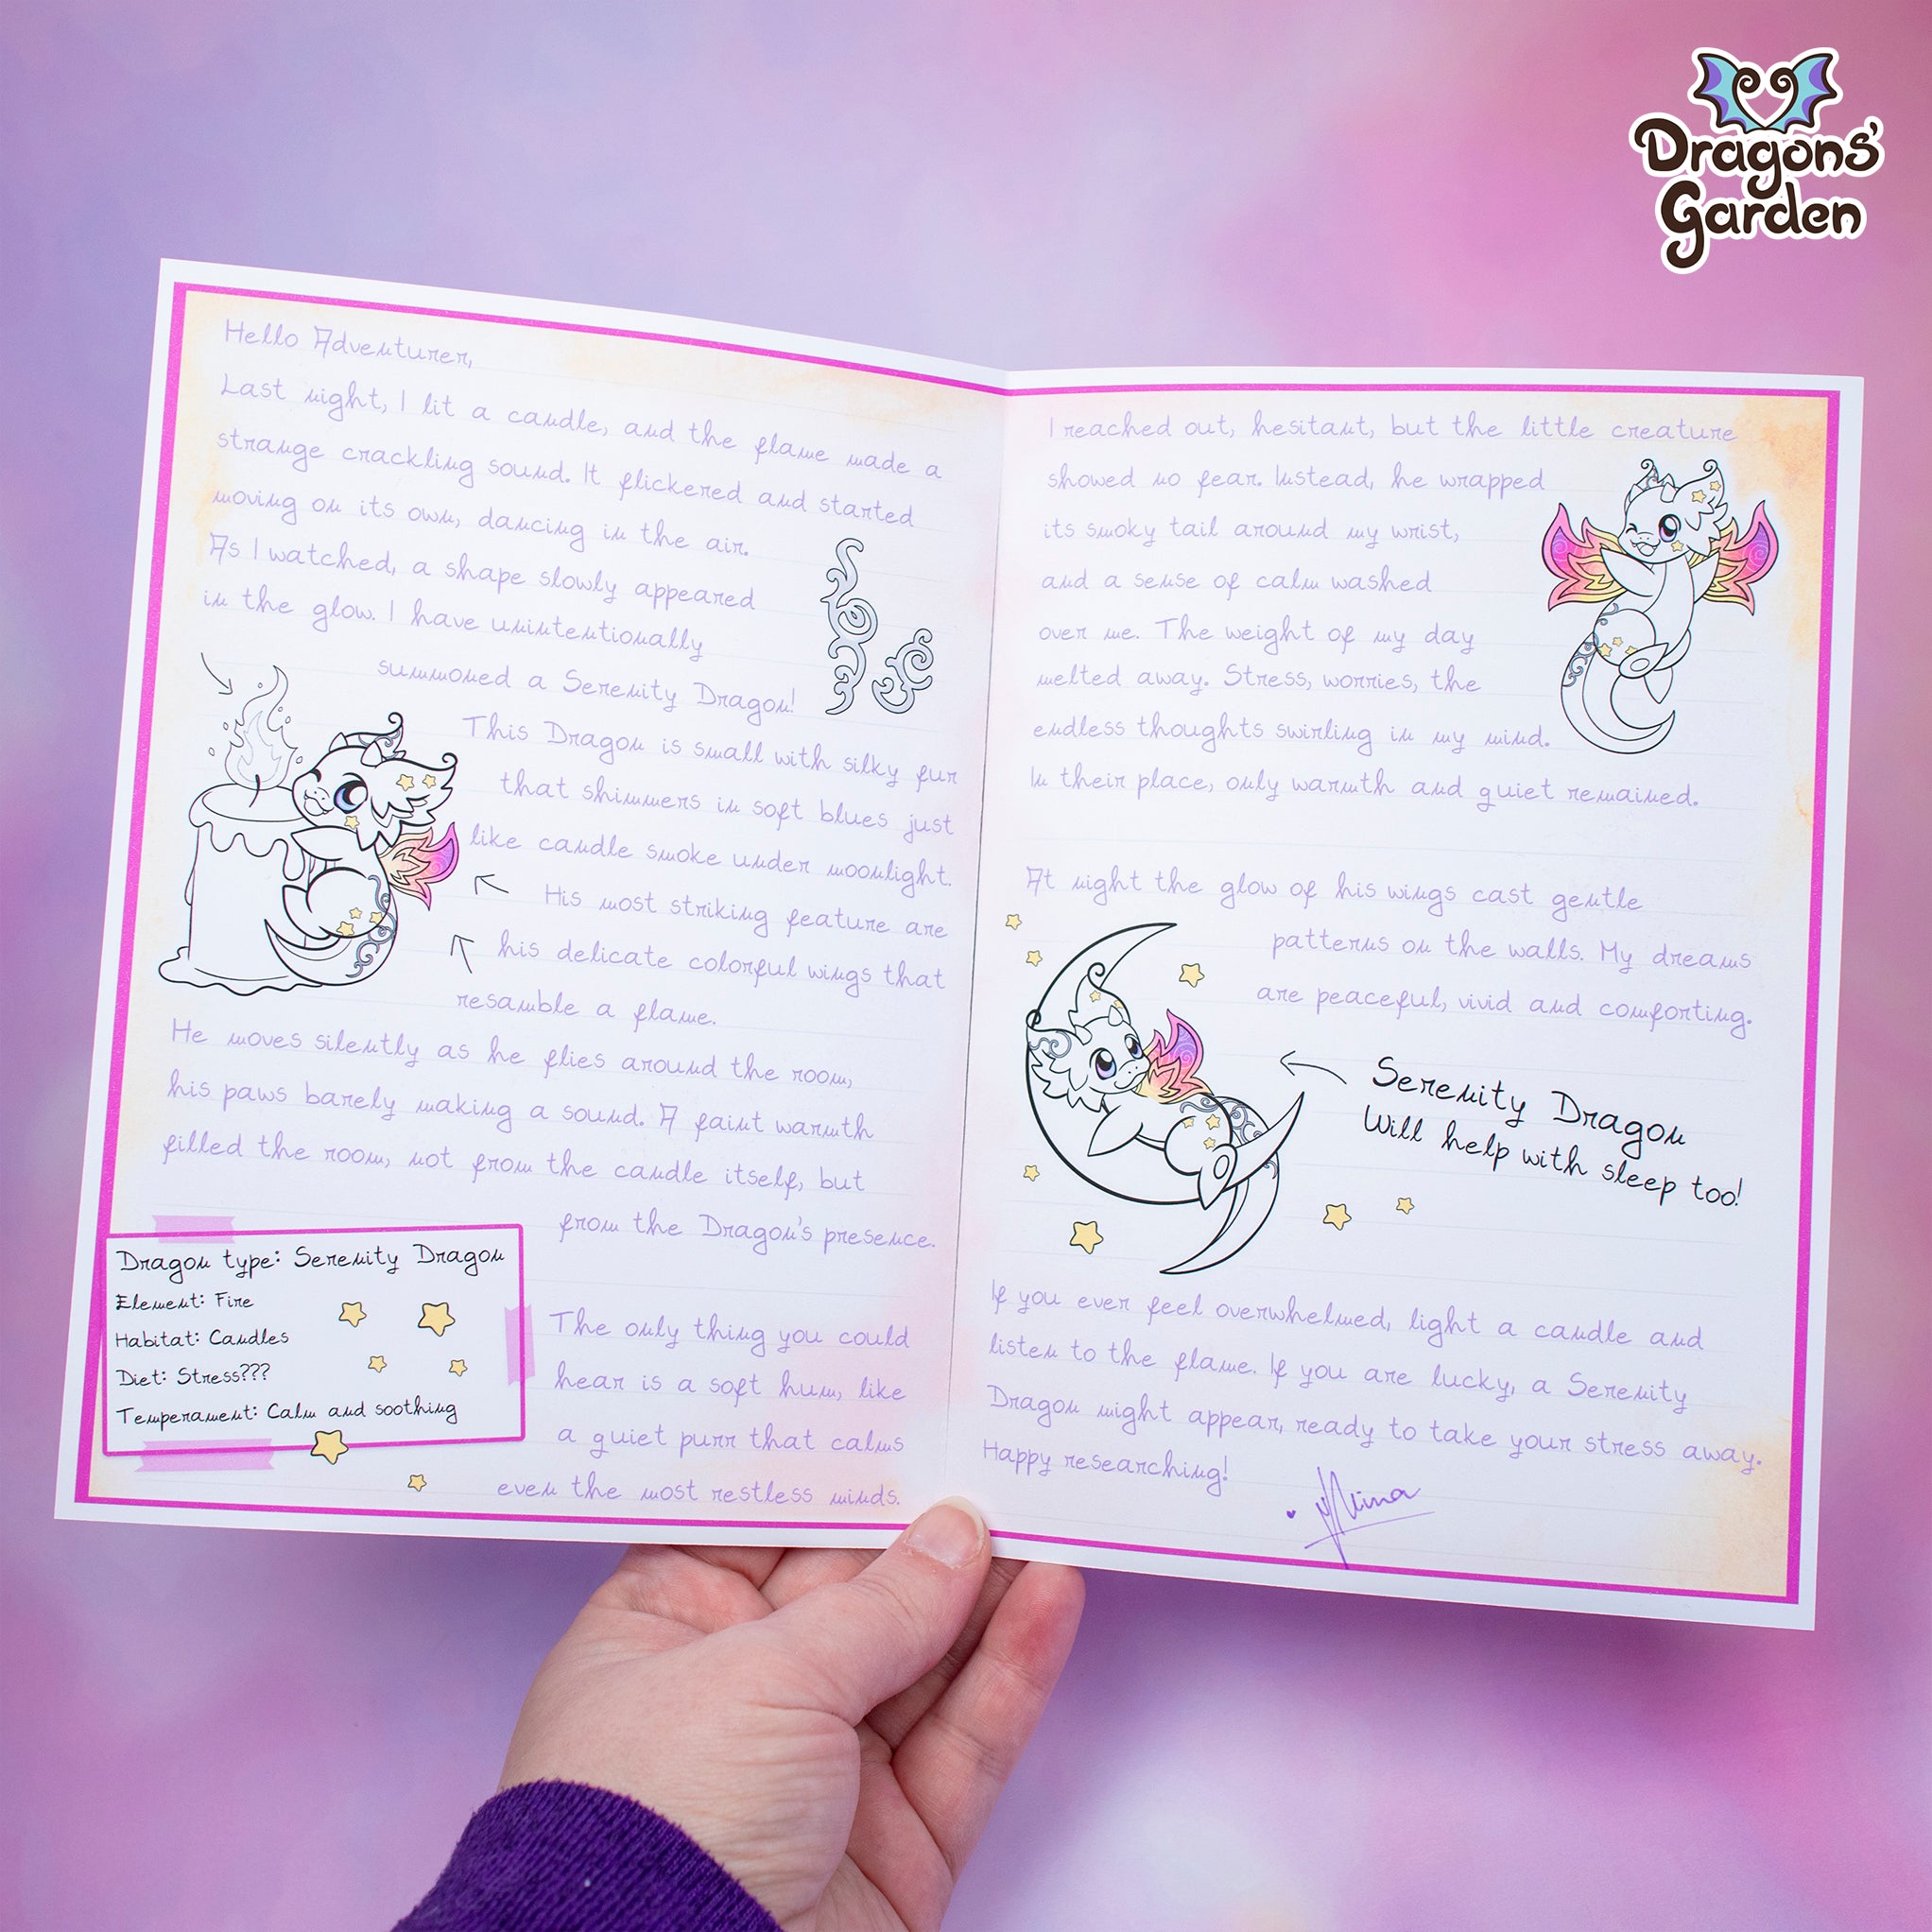 Dragons'
Garden
Hello Adventurer,
Last night, I lit a candle, and the flame made a
strange crackling sound. It flickered and started
moving on its own, dancing in the air.
As I watched, a shape slowly appeared
in the glow. I have unintentionally
summoned a Serenity Dragon!
This Dragon is small with silky fur
that shimmers in soft blues just
like candle smoke under moonlight.
His most striking feature are
his delicate colorful wings that
resamble a flame.
He moves silently as he flies around the room,
his paws barely making a sound. A faint warmth
filled the room, not from the candle itself, but
from the Dragon's presence.
Dragon type: Serenity Dragon
Element: Fire
Habitat: Candles
Diet: Stress???
Temperament: Calm and soothing
The only thing you could
hear is a soft hum, like
a quiet purr that calms
even the most restless minds.
I reached out, hesitant, but the little creature
showed no fear. Instead, he wrapped
its smoky tail around my wrist,
and a sense of calm washed
over me. The weight of my day
melted away. Stress, worries, the
endless thoughts swirling in my mind.
In their place, only warmth and quiet remained.
At night the glow of his wings cast gentle
patterns on the walls. My dreams
are peaceful, vivid and comforting.
Serenity Dragon
Will help with sleep too!
If you ever feel overwhelmed, light a candle and
listen to the flame. If you are lucky, a Serenity
Dragon might appear, ready to take your stress away.
Happy researching!